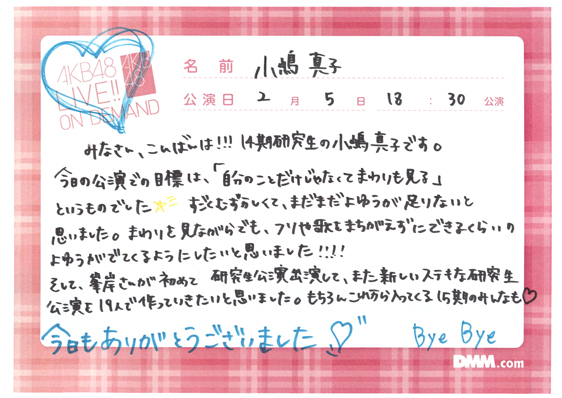 AKB48
LIVE!!
ON DEMAND
AKB
48
名前 小嶋真子
公演日 2月5日 18:30公演
みなさん、こんばんは!!! 14期研究生の小嶋真子です。
今日の公演での目標は、「自分のことだけじゃなくてまわりも見る」
というものでした すごくむずかしくて、まだまだよゆうが足りないと
思いました。まわりを見ながらでも、フリや歌をまちがえずにできるくらいの
よゆうがでてくるようにしたいと思いました!!!!
そして、峯岸さんが初めて 研究生公演出演して、また新しいステキな研究生
公演を19人で作っていきたいと思いました。もちろんこれから入ってくる15期のみんなも♡
今日もありがとうございました♡" Bye Bye
DMM.com